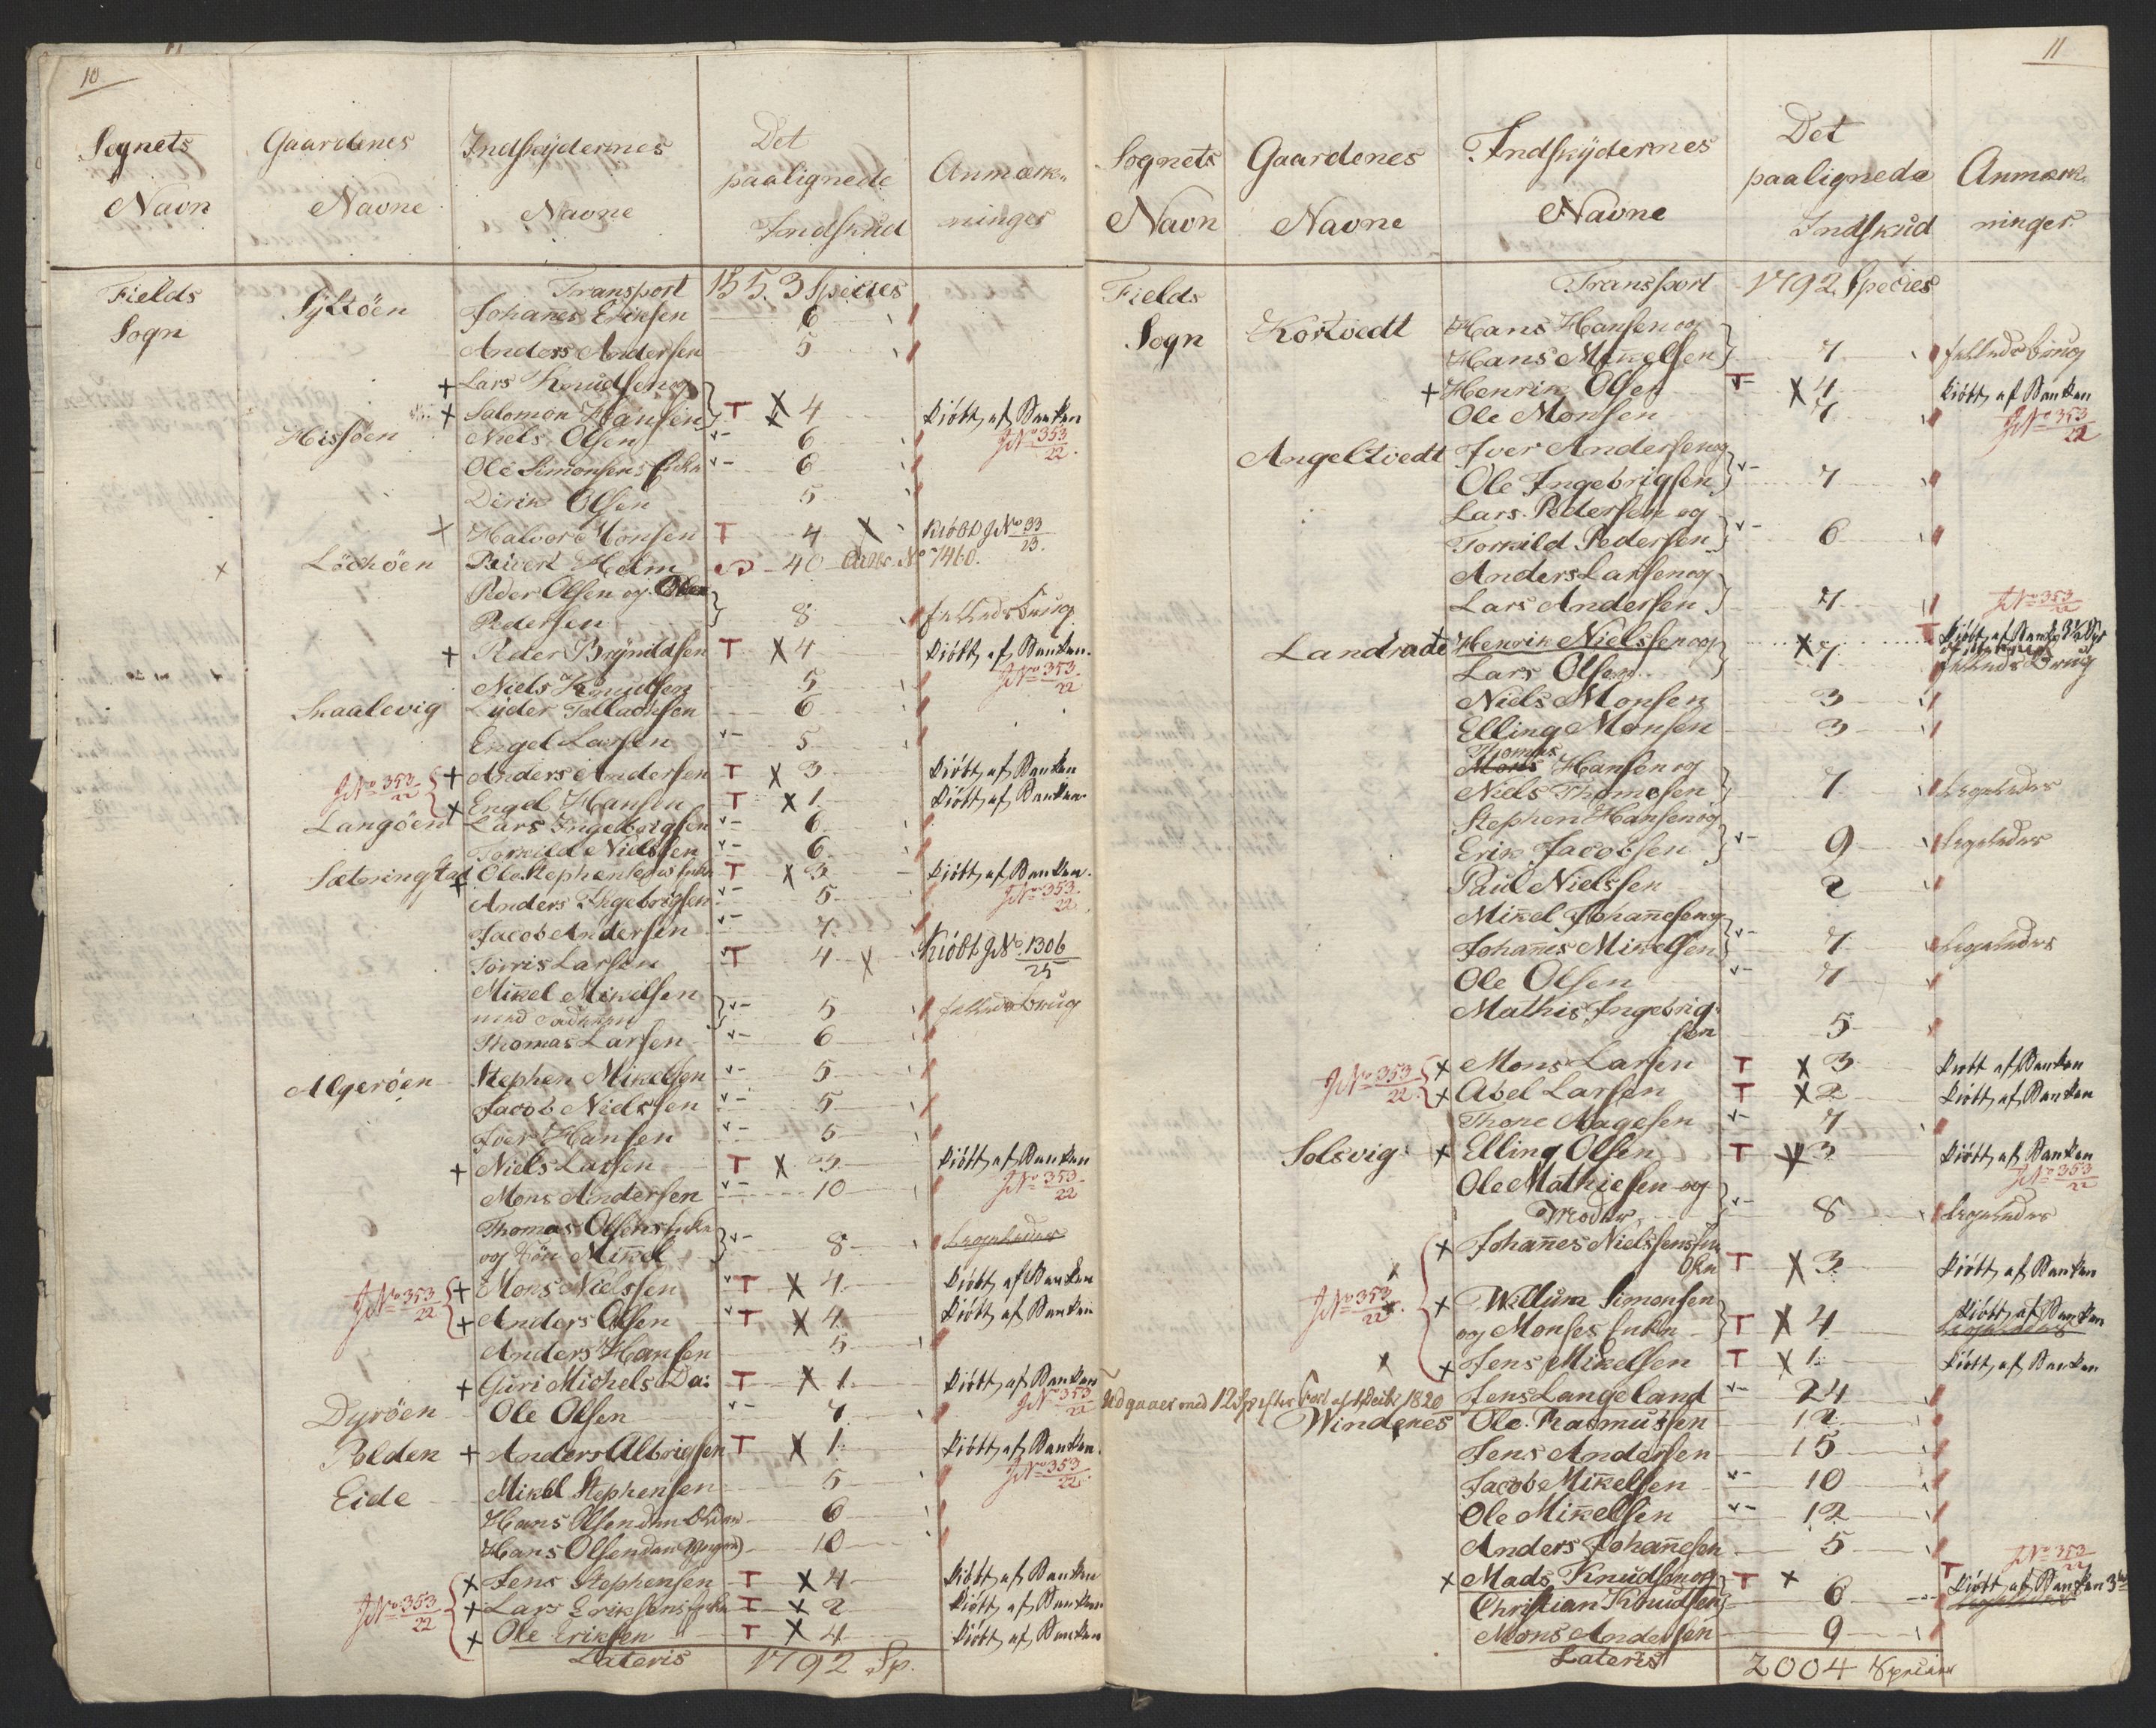 10
Sognets Navn
Gaardenes Navne
Indskydernes Navne
Det paalignede Indskud
Anmærkninger
Fields Sogn
Transport 1553 Species
Syltöen Johanes Eriksen 6
Anders Andersen 5
+ Lars Knudsen og
+ Salomon Hansen T X 4 kiöbt af Banken
Hissöen Niels Olsen 6 JNo 353/22
Ole Simonsens Enke 6
Dirik Olsen 5
X Halvor Monsen T 4 X kiöbt JNo 33/23
X Löthöen Rivert Helm 40 No 7460.
Peder Olsen og
Pedersen 8 fælleds brug
+ Peder Brynildsen T X 4 kiöbt af Banken.
Niels Knudsen 5 JNo 353/22
Skaalevig Lyder Tollachsen 6
Engel Larsen 5
JNo 353/22 + Anders Andersen T X 3 kiöbt af Banken
X Engel Hansen T X 1 kiöbt af Banken
Langöen Lars Ingebrigtsen 6
Torkild Nielssen 6
Sætringstad + Ole Stephensens Enke T X 3 kiöbt af Banken.
Anders Ingebrigtsen 5 JNo 353/22
Jacob Andersen 7
Torris Larsen T 4 X Kiöbt JNo 1306/25
Mikel Mikelsen
med Faderen 5 fælleds brug
Thomas Larsen 6
Algeröen Stephen Mikelsen 5
Jacob Nielssen 5
Iver Hansen 5
+ Niels Larsen T X 3 kiöbt af Banken
Mons Andersen 10 JNo 353/22
Thomas Olsens Enke
og Sön Mikel 8 Ligeledes
JNo 353/22 + Mons Nielssen T X 4 kiöbt af Banken
+ Anders Olsen T X 4 kiöbt af Banken
Anders Hansen 5
+ Guri Michels Da: T X 1 kiöbt af Banken
Dyröen Ole Olsen 7 JNo 353/22
Polden + Anders Albrigtsen T X 1 kiöbt af Banken.
Eide Mikel Stephensen 5 JNo 353/22
Hans Olsen den Ældre 6
Hans Olsen den Yngre 10
JNo 353/22 X Jens Stephensen T X 4 kiöbt af Banken
+ Lars Eriksens Enke T X 2 kiöbt af Banken
+ Ole Eriksen T X 4 kiöbt af Banken
Lateris 1792 Sp.
11
Sognets Navn
Gaardenes Navne
Indskydernes Navne
Det paalignede Indskud
Anmærkninger
Fields Sogn
Transport 1792 Species
Kortvedt Hans Hansen og
Hans Mikelsen 7 fælleds brug
+ Henrik Olsen T X 4 kiöbt af Banken
Ole Monsen 7 JNo 353/22
Angeltvedt Iver Andersen og
Ole Ingebrigtsen 7
Lars Pedersen og
Torkild Pedersen 6
Anders Larsen og
Lars Andersen 7 JNo 353/22
Landrade + Henrik Nielssen og T kiöbt af Banken
Lars Olsen X 7 fælleds Brug
Niels Monsen 3
Elling Monsen 3
Thomas
Mons Hansen og
Niels Thomesen 7 Ligeledes
Stephen Hansen og
Erik Jacobsen 9 Ligeledes
Paul Nielssen 2
Mikel Johannesen og
Johannes Mikelsen 7 Ligeledes
Ole Olsen 7
Mathis Ingebrig:
sen 5
JNo 353/22 X Mons Larsen T X 3 kiöbt af Banken
X Abel Larsen T X 2 kiöbt af Banken
Thore Aagesen 7
Solsvig: X Elling Olsen T X 3 kiöbt af Banken
Ole Mathiesen og JNo 353/22
Moder 8 Ligeledes
X Johannes Nielssens En
ken T X 3 kiöbt af Banken
JNo 353/22 X Willum Simonsen
og Monses Enke T X 4 kiöbt af Banken
X Jens Mikelsen T X 1 kiöbt af Banken
Udgaaer med 12 Sp efter 1820 Jens Langeland 24
Windenes Ole Rasmussen 12
Jens Andersen 15
Jacob Mikelsen 10
Ole Mikelsen 12
Anders Johannesen 5 JNo 353/22
X Mads Knudsen og T X T kiöbt af Banken 3
Christian Knudsen 6 Ligeledes
Mons Andersen 9
Lateris 2004 Species